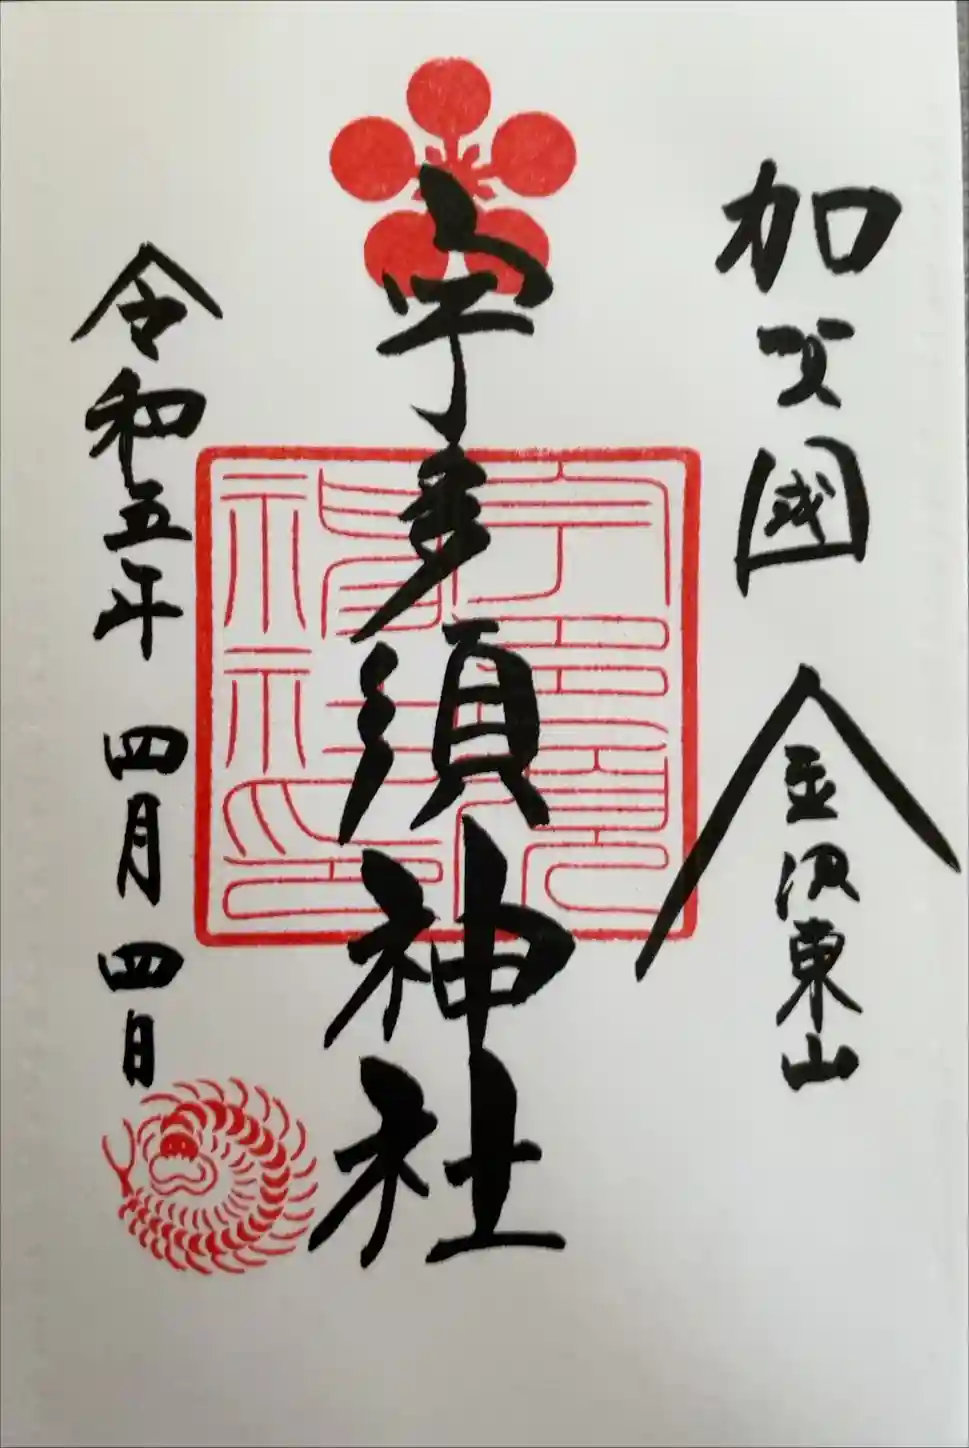 加賀國 金沢東山
宇多須神社
令和五年 四月 四日
宇多須神社之印